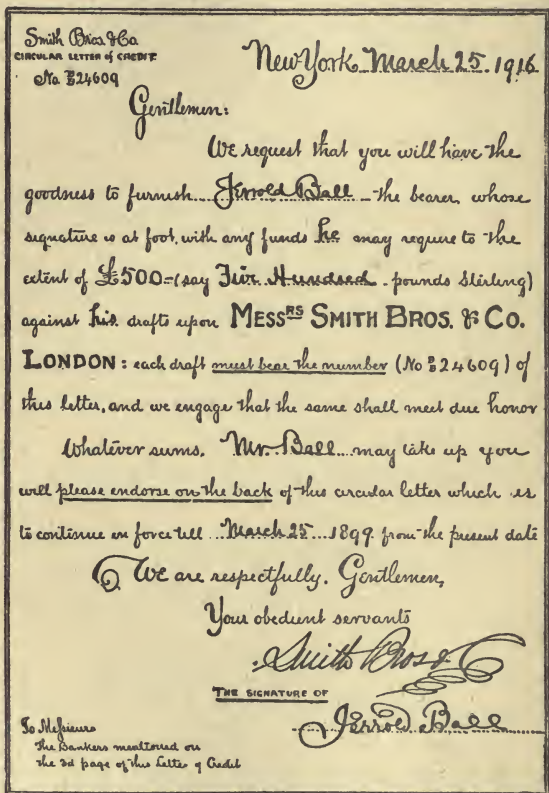 Smith Bros & Co.
CIRCULAR LETTER of CREDIT
No. B/E 24609
New York March 25. 1916
Gentlemen:
We request that you will have the
goodness to furnish Jerrold Ball the bearer, whose
signature is at foot, with any funds he may require to the
extent of £500 = (say Five Hundred pounds Sterling)
against his drafts upon MESSRS SMITH BROS. & CO.
LONDON: each draft must bear the number (No B/E 24609) of
this letter, and we engage that the same shall meet due honor
Whatever sums. Mr. Ball may take up you
will please endorse on the back of this circular letter which is
to continue in force till March 25 1899 from the present date
We are respectfully. Gentlemen,
Your obedient servants
Smith Bros &
THE SIGNATURE OF
Jerrold Ball
To Messieurs
The Bankers mentioned on
the 3d page of this Letter of Credit